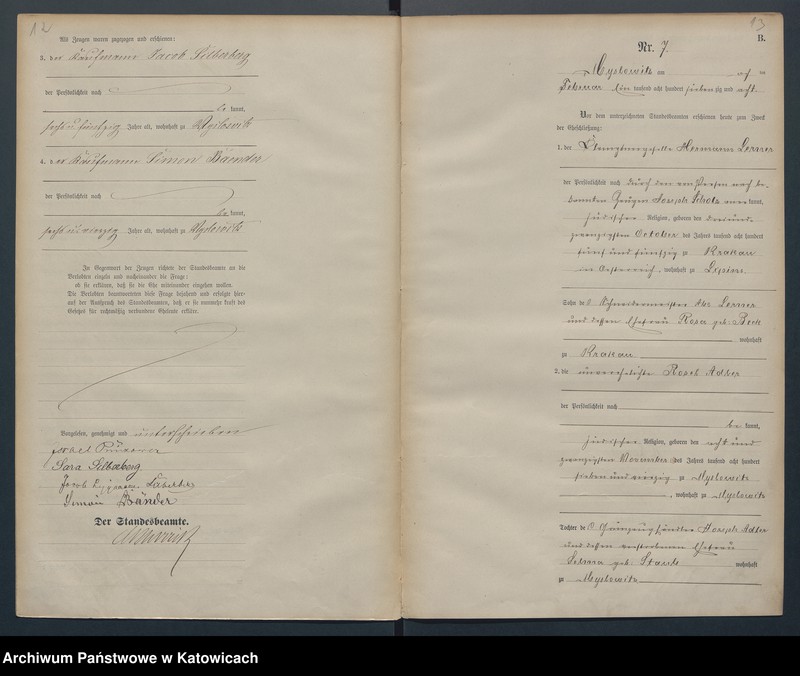 12
Als Zeugen waren zugezogen und erschienen:
3. der Kaufmann Jacob Silberberg
der Persönlichkeit nach
be kannt,
sechs u. fünfzig Jahre alt, wohnhaft zu Myslowitz
4. der Kaufmann Simon Baender
der Persönlichkeit nach
be kannt,
sechs u. vierzig Jahre alt, wohnhaft zu Myslowitz
In Gegenwart der Zeugen richtete der Standesbeamte an die
Verlobten einzeln und nacheinander die Frage:
ob sie erklären, daß sie die Ehe miteinander eingehen wollen.
Die Verlobten beantworteten diese Frage bejahend und erfolgte hier-
auf der Ausspruch des Standesbeamten, daß er sie nunmehr kraft des
Gesetzes für rechtmäßig verbundene Eheleute erkläre.
Vorgelesen, genehmigt und unterschrieben
Sara Silberberg
Jacob
Simon Bänder
Der Standesbeamte.
13
B.
Nr. 7.
Myslowitz am
Februar Ein tausend acht hundert sieben zig und acht
Vor dem unterzeichneten Standesbeamten erschienen heute zum Zweck
der Eheschließung:
1. der Hermann Lerner
der Persönlichkeit nach durch den von Person nach be-
kannten Zeugen Joseph Scholz aner kannt,
jüdischer Religion, geboren den drei und
zwanzigsten October des Jahres tausend acht hundert
fünf und fünfzig zu Krakau
in Oesterreich, wohnhaft zu
Sohn des Schneidermeister Lerner
und dessen Ehefrau Rosa geb. Beck
wohnhaft
zu Krakau
2. die unverehelichte Rosel Adler
der Persönlichkeit nach
be kannt,
jüdischer Religion, geboren den acht und
zwanzigsten November des Jahres tausend acht hundert
sieben und vierzig zu Myslowitz
, wohnhaft zu Myslowitz
Tochter des Joseph Adler
und dessen verstorbenen Ehefrau
Selma geb. wohnhaft
zu Myslowitz
Archiwum Państwowe w Katowicach